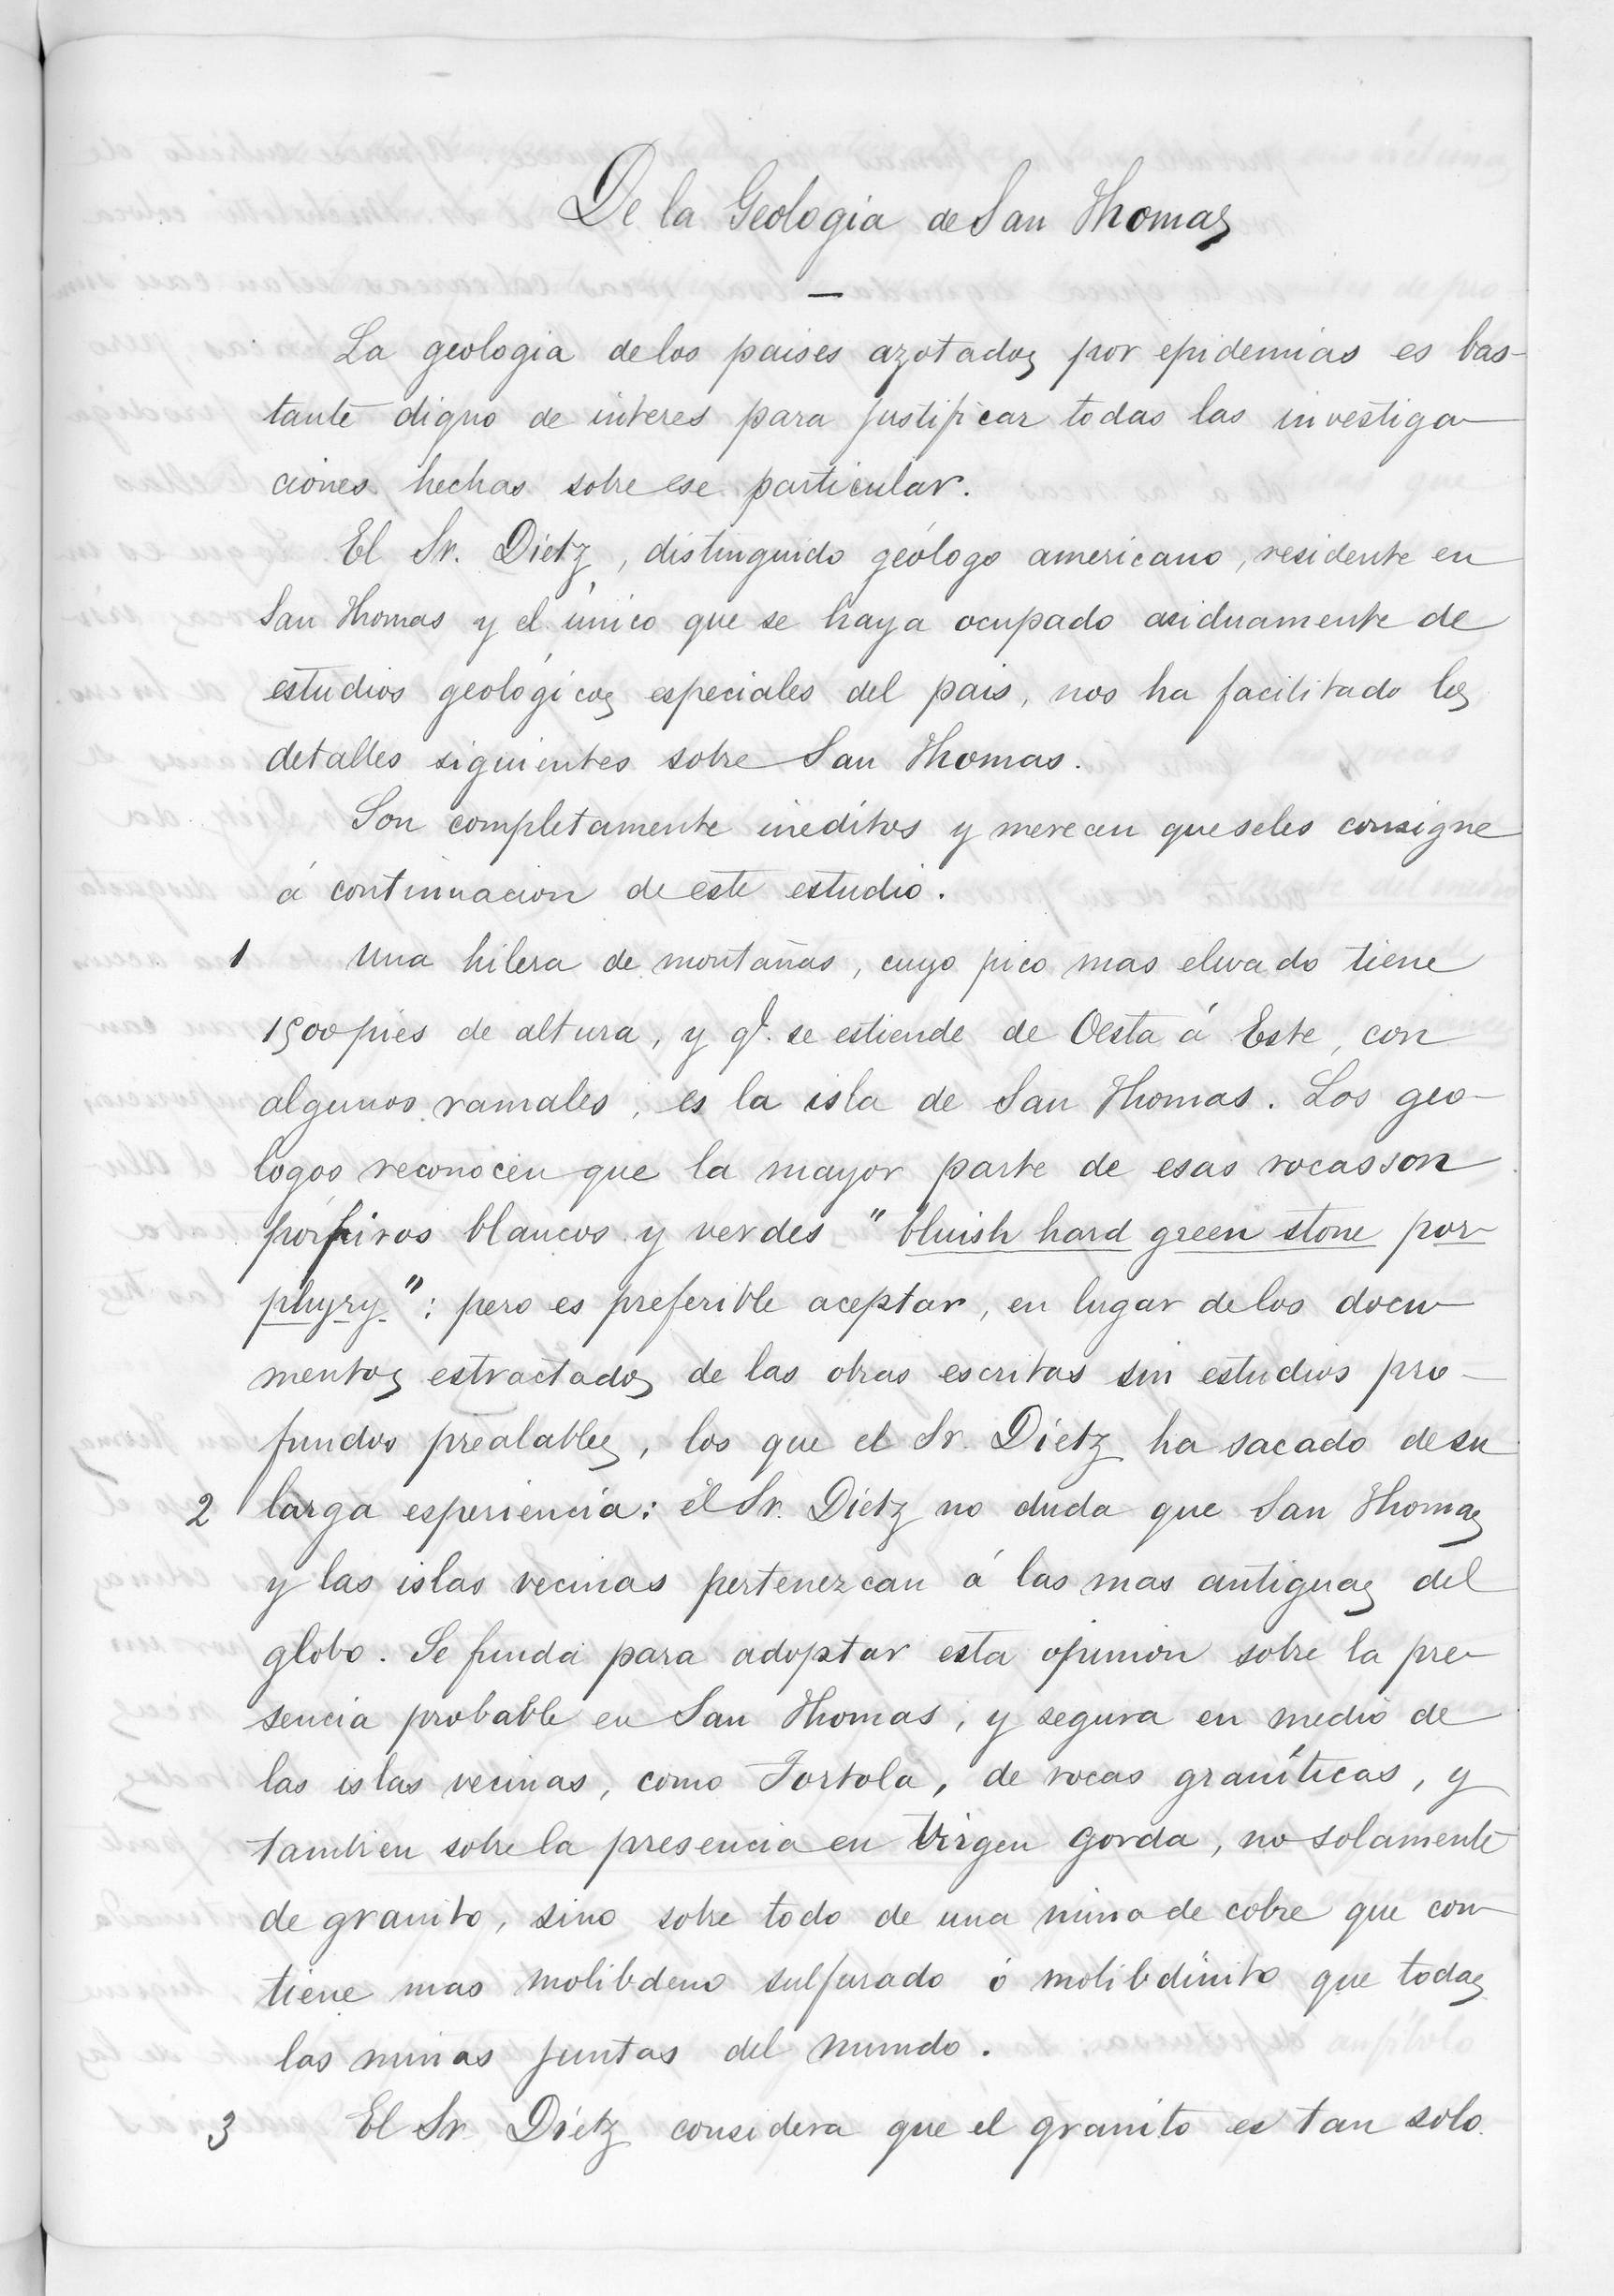 De la Geologia de San Thomas
La geologia de los paises azotados por epidemias es bas-
tante digno de interes para justificar todas las investiga-
ciones hechas sobre ese particular.
El Sr. Dietz, distinguido geólogo americano, residente en
San Thomas y el único que se haya ocupado asiduamente de
estudios geológicos especiales del pais, nos ha facilitado los
detalles siguientes sobre San Thomas.
Son completamente inéditos y merecen que se les consigne
á continuacion de este estudio.
1 Una hilera de montañas, cuyo pico mas elevado tiene
1500 pies de altura, y q.e se estiende de Oesta á Este, con
algunos ramales, es la isla de San Thomas. Los geo-
logos reconocen que la mayor parte de esas rocas son
pórfiros blancos y verdes "bluish hard green stone por-
phyry": pero es preferible aceptar, en lugar de los docu-
mentos estractados de las obras escritas sin estudios pro-
fundos prealables, los que el Sr. Dietz ha sacado de su
2 larga esperiencia: el Sr. Dietz no duda que San Thomas
y las islas vecinas pertenezcan á las mas antiguas del
globo. Se funda para adoptar esta opinion sobre la pre-
sencia probable en San Thomas, y segura en medio de
las islas vecinas, como Tortola, de rocas graníticas, y
tambien sobre la presencia en Virgen gorda, no solamente
de granito, sino sobre todo de una mina de cobre que con-
tiene mas molibdeno sulfurado ó molibdinito que todas
las minas juntas del mundo.
3 El Sr. Dietz considera que el granito es tan solo